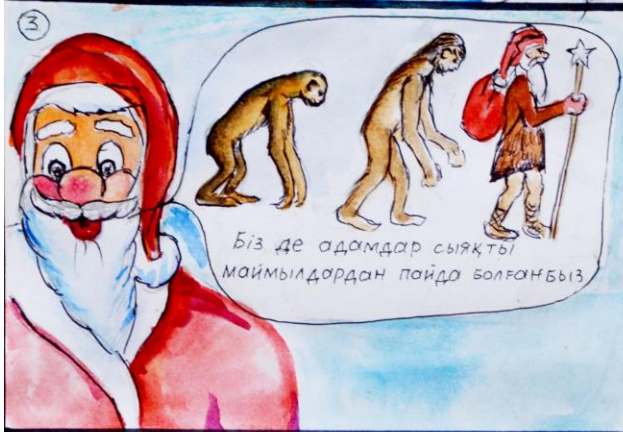 3
Біз де адамдар сыяқты
маймылдардан пайда болғанбыз